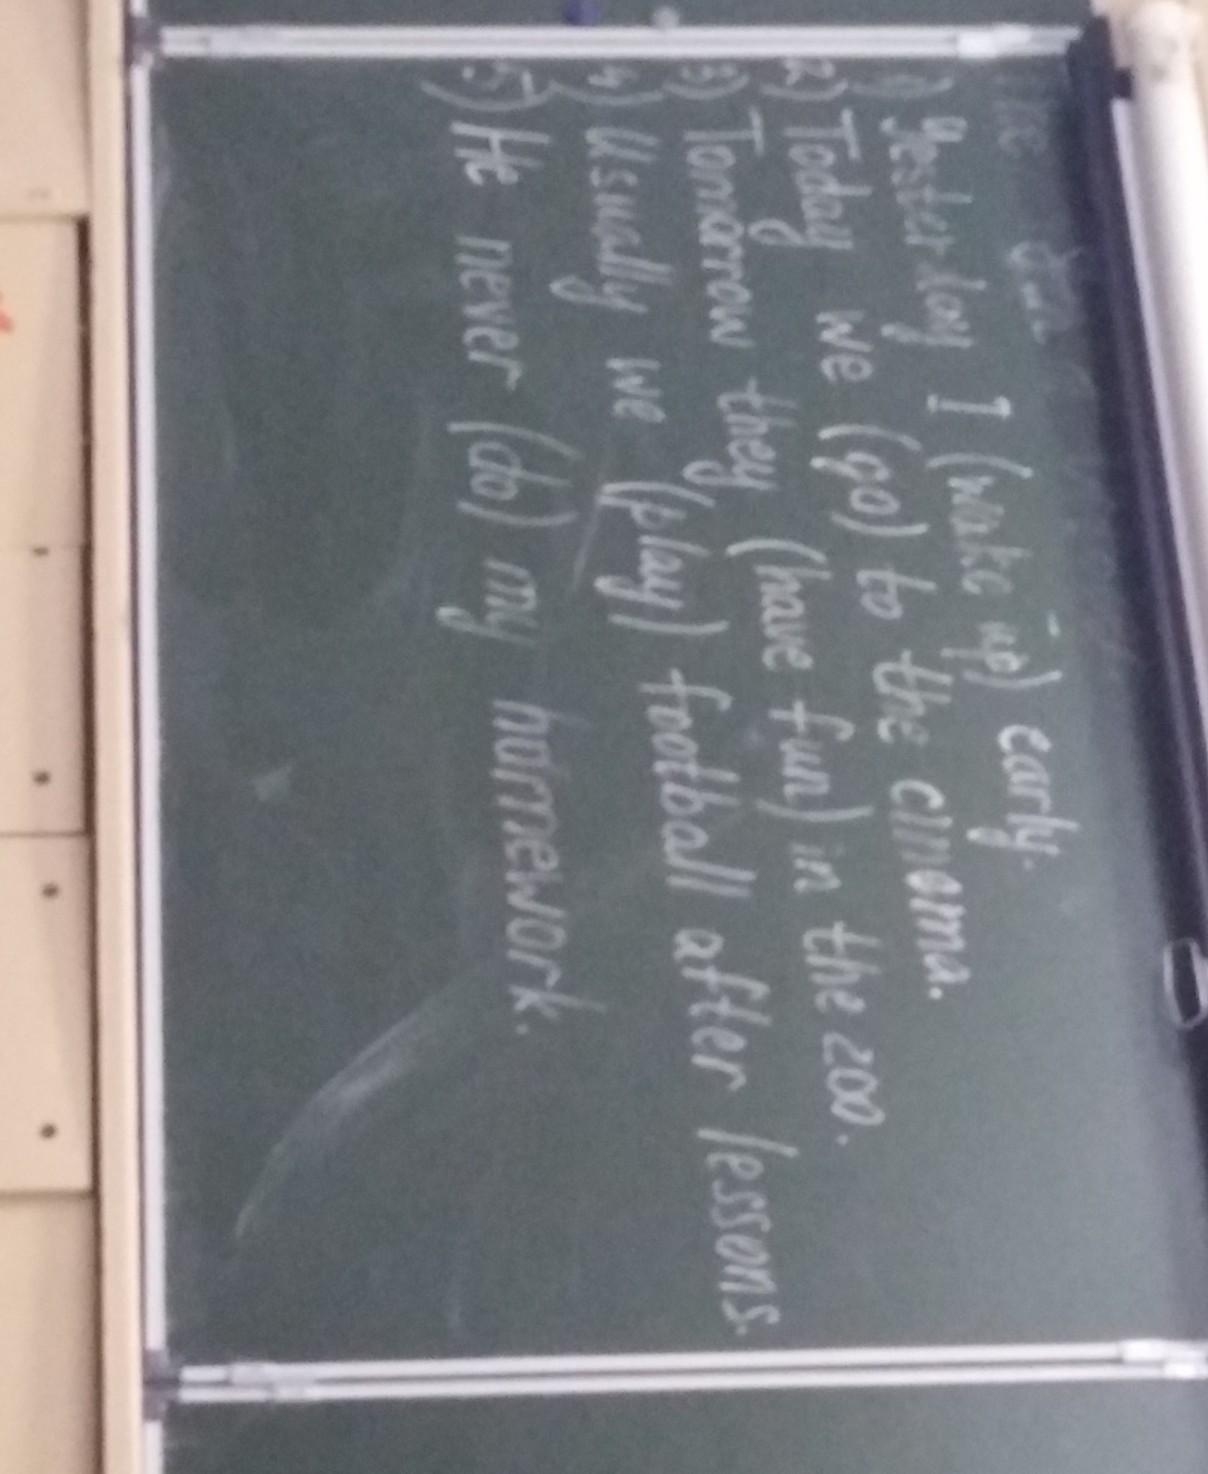 1) Yesterday I (wake up) early.
2) Today we (go) to the cinema.
3) Tomorrow they (have fun) in the zoo.
4) Usually we (play) football after lessons.
5) He never (do) my homework.